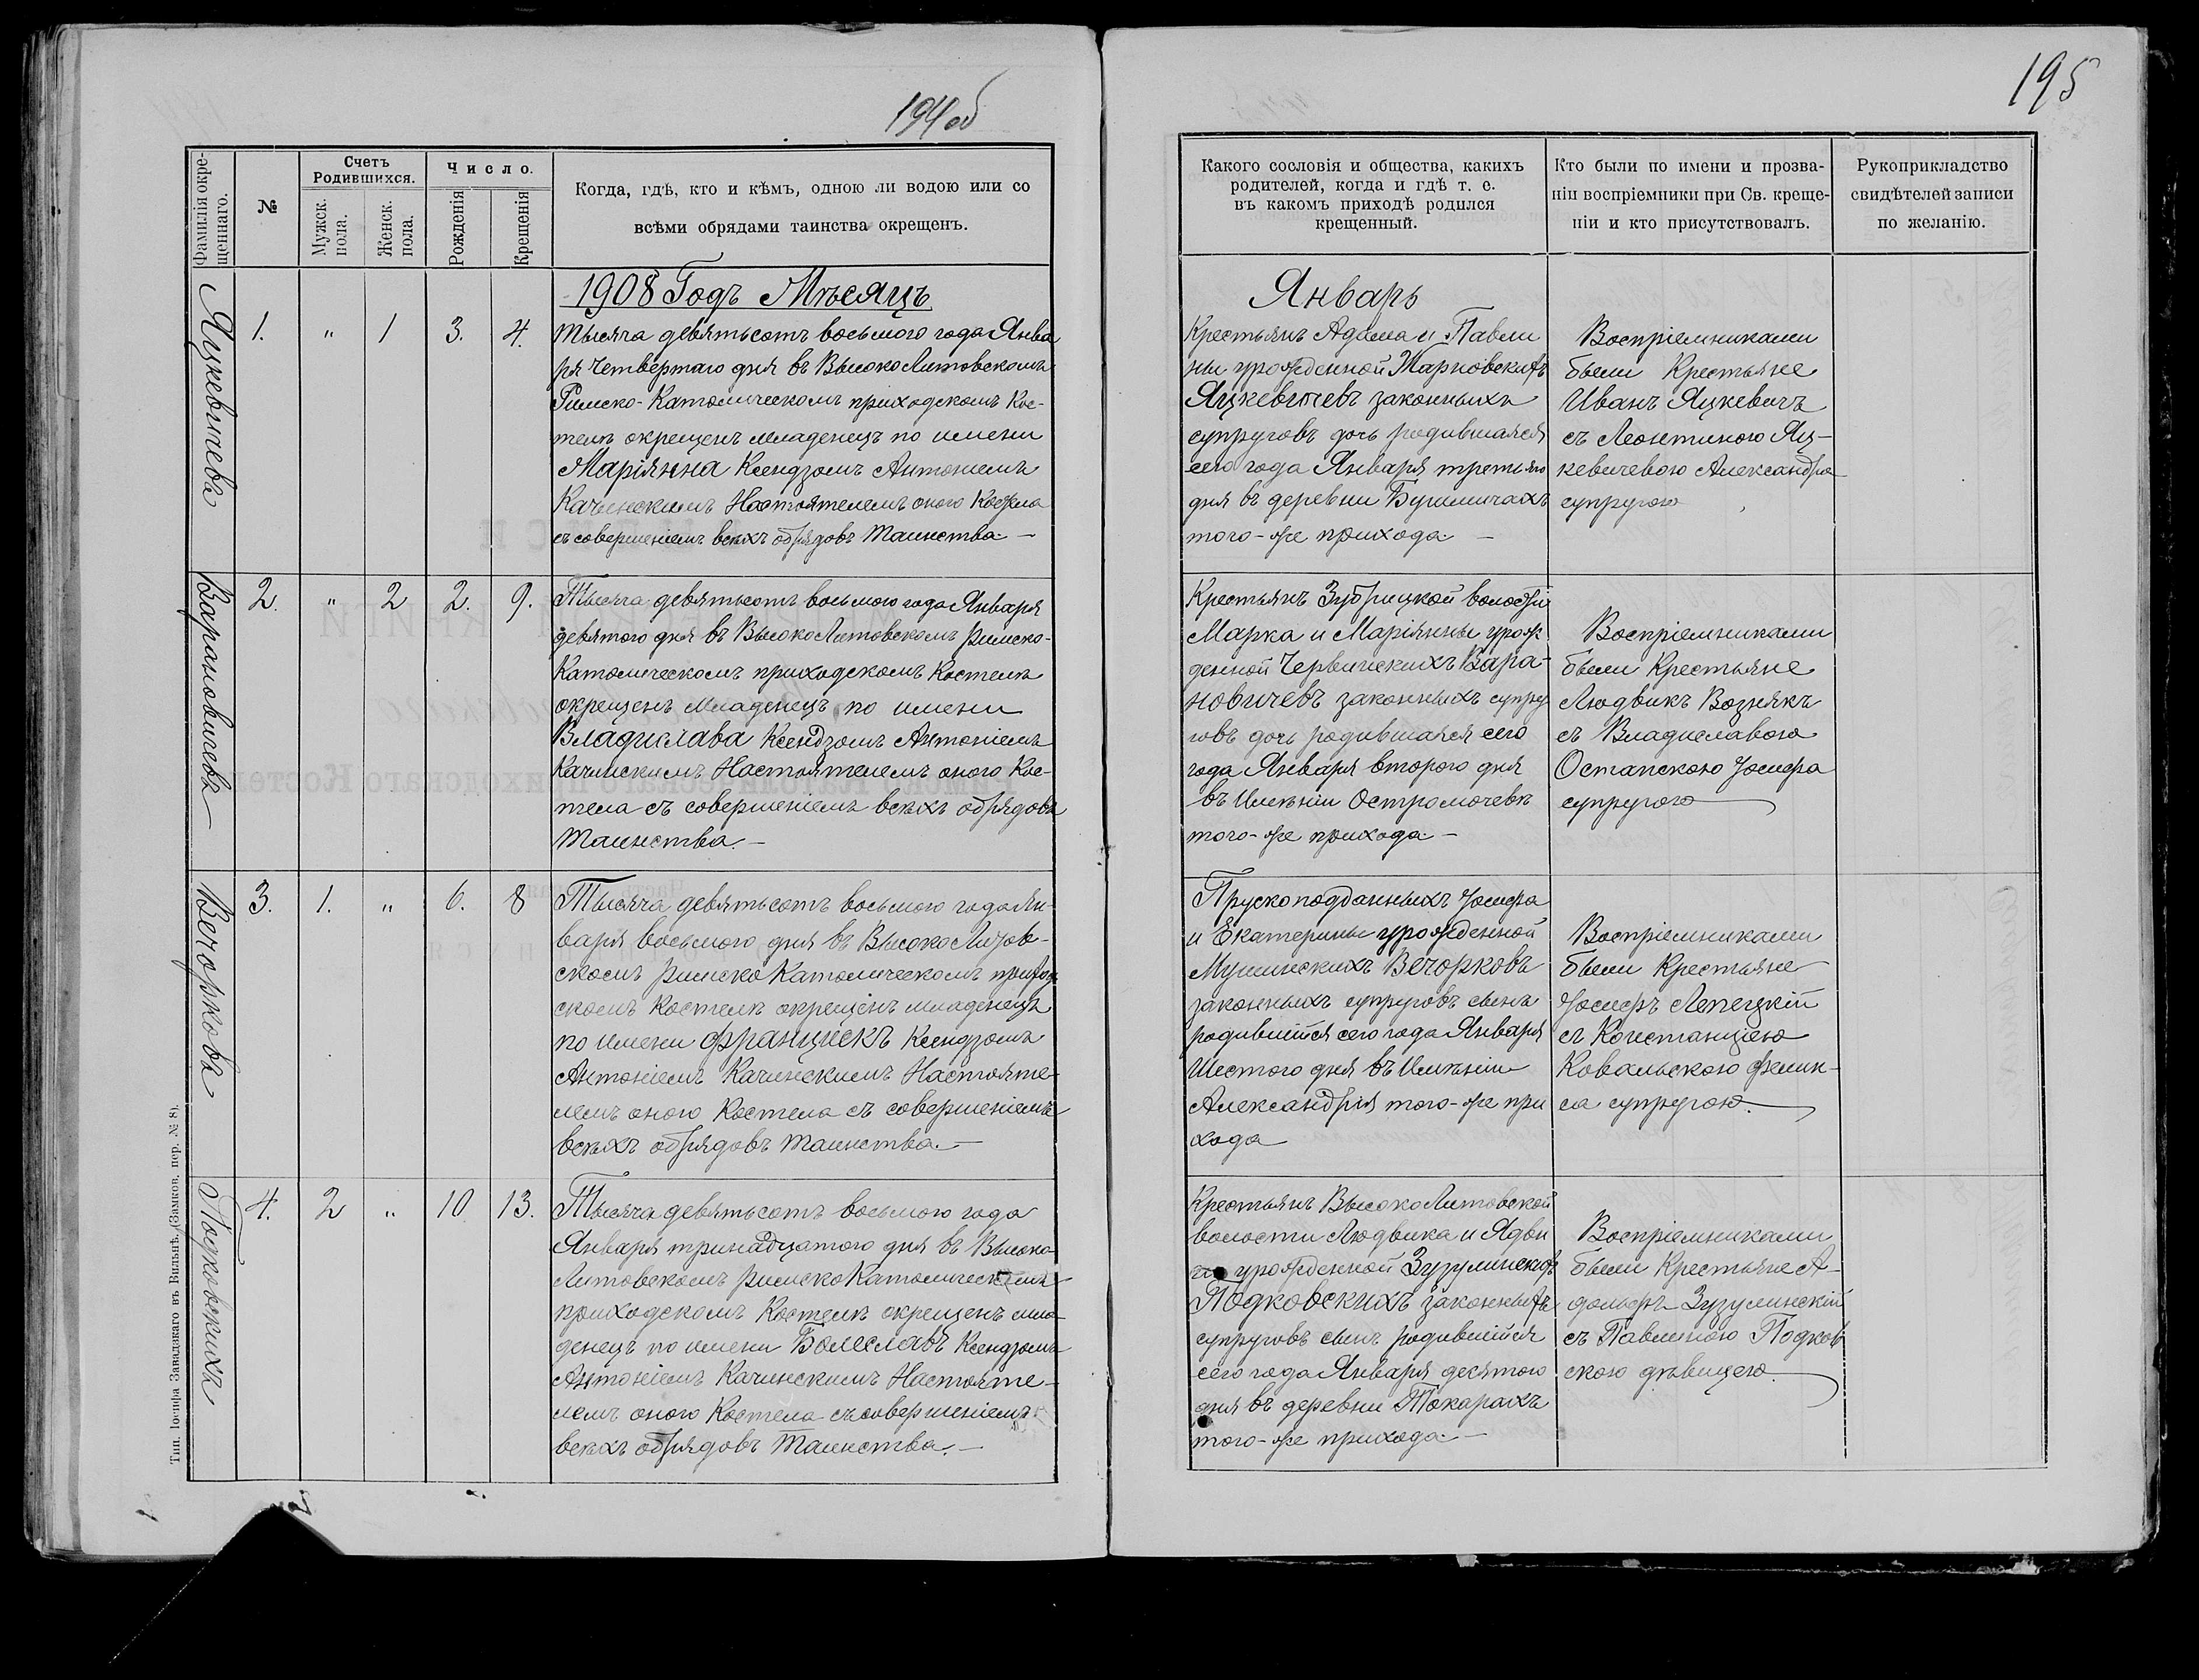 194об
Фамилія окре-
щеннаго.
№
Счетъ
Родившихся.
Мужск.
пола.
Женск.
пола.
Число.
Рожденія
Крещенія
Когда, гдѣ, кто и кѣмъ, одною ли водою или со
всѣми обрядами таинства окрещенъ.
1908 Годъ Мѣсяцъ
Яцкевичева
1. " 1 3. 4.
Тысяча девятьсотъ восьмого года Янва
ря Четвертаго дня въ Высоко Литовскомъ
Римско-Католическомъ приходскомъ Кос-
телѣ окрещенъ младенецъ по имени
Маріянна Ксендзомъ Антоніемъ
Качинскимъ Настоятелемъ оного Костела
съ совершеніемъ всѣхъ обрядовъ Таинства —
Барановичева
2. " 2 2. 9.
Тысяча девятьсотъ восьмого года Января
девятого дня въ Высоко Литовскомъ Римско-
Католическомъ приходскомъ Костелѣ
окрещенъ младенецъ по имени
Владислава Ксендзомъ Антоніемъ
Качинскимъ Настоятелемъ оного Кос-
тела съ совершеніемъ всѣхъ обрядовъ
Таинства. —
Вечоркова
3. 1. " 6. 8
Тысяча девятьсотъ восьмого года Ян-
варя восьмого дня въ Высоко Литов-
скомъ Римско Католическомъ приход
скомъ Костелѣ окрещенъ младенецъ
по имени Францискъ Ксендзомъ
Антоніемъ Качинскимъ Настояте-
лемъ оного Костела съ совершеніемъ
всѣхъ обрядовъ Таинства. —
Подковскихъ
4. 2 " 10 13.
Тысяча девятьсотъ восьмого года
Января тринадцатого дня въ Высоко
Литовскомъ Римско Католическомъ
приходскомъ Костелѣ окрещенъ мла-
денецъ по имени Болеславъ Ксендзомъ
Антоніемъ Качинскимъ Настояте-
лемъ оного Костела съ совершеніемъ
всѣхъ обрядовъ Таинства. —
Тип. Іосифа Завадзкаго въ Вильнѣ, (Замков. пер. № 8).
195
Какого сословія и общества, какихъ
родителей, когда и гдѣ т. е.
въ какомъ приходѣ родился
крещенный.
Кто были по имени и прозва-
ніи воспріемники при Св. креще-
ніи и кто присутствовалъ.
Рукоприкладство
свидѣтелей записи
по желанію.
Январь
Крестьянъ Адама и Павли
ны урожденной Жарновскихъ
Яцкевичевъ законныхъ
супруговъ дочь родившаяся
сего года Января третьяго
дня въ деревни Бушмичахъ
того-же прихода —
Воспріемниками
были Крестьяне
Иванъ Яцкевичъ
съ Леонтиною Яц-
кевичевою Александра
супругою
Крестьянъ Зубрицкой волости
Марка и Маріянны урож
денной Червинскихъ Бара-
новичевъ законныхъ супру
говъ дочь родившаяся сего
года Января второго дня
въ имѣніи Остромочевѣ
того-же прихода —
Воспріемниками
были Крестьяне
Людвикъ Вознякъ
съ Владиславою
Остапскою Іосифа
супругою
Прускоподданныхъ Іосифа
и Екатерины урожденной
Мушинскихъ Вечорковъ
законныхъ супруговъ сынъ
родившійся сего года Января
Шестого дня въ имѣніи
Александрія того-же при
хода
Воспріемниками
были Крестьяне
Іосифъ Лепецкій
съ Констанціею
Ковальскою Феликс-
са супругою.
Крестьянъ Высоко Литовской
волости Людвика и Ядви
ги урожденной Зузулинскихъ
Подковскихъ законныхъ
супруговъ сынъ родившійся
сего года Января десятого
дня въ деревни Токарахъ
того-же прихода —
Воспріемниками
были Крестьяне А-
дольфъ Зузулинскій
съ Павлиною Подков
скою дѣвицею